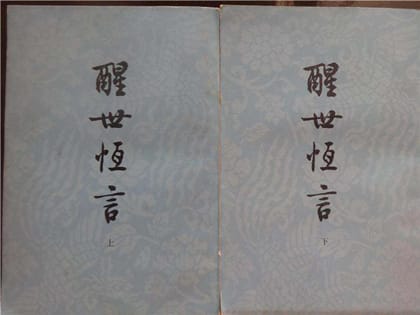 醒世恆言
上
醒世恆言
下